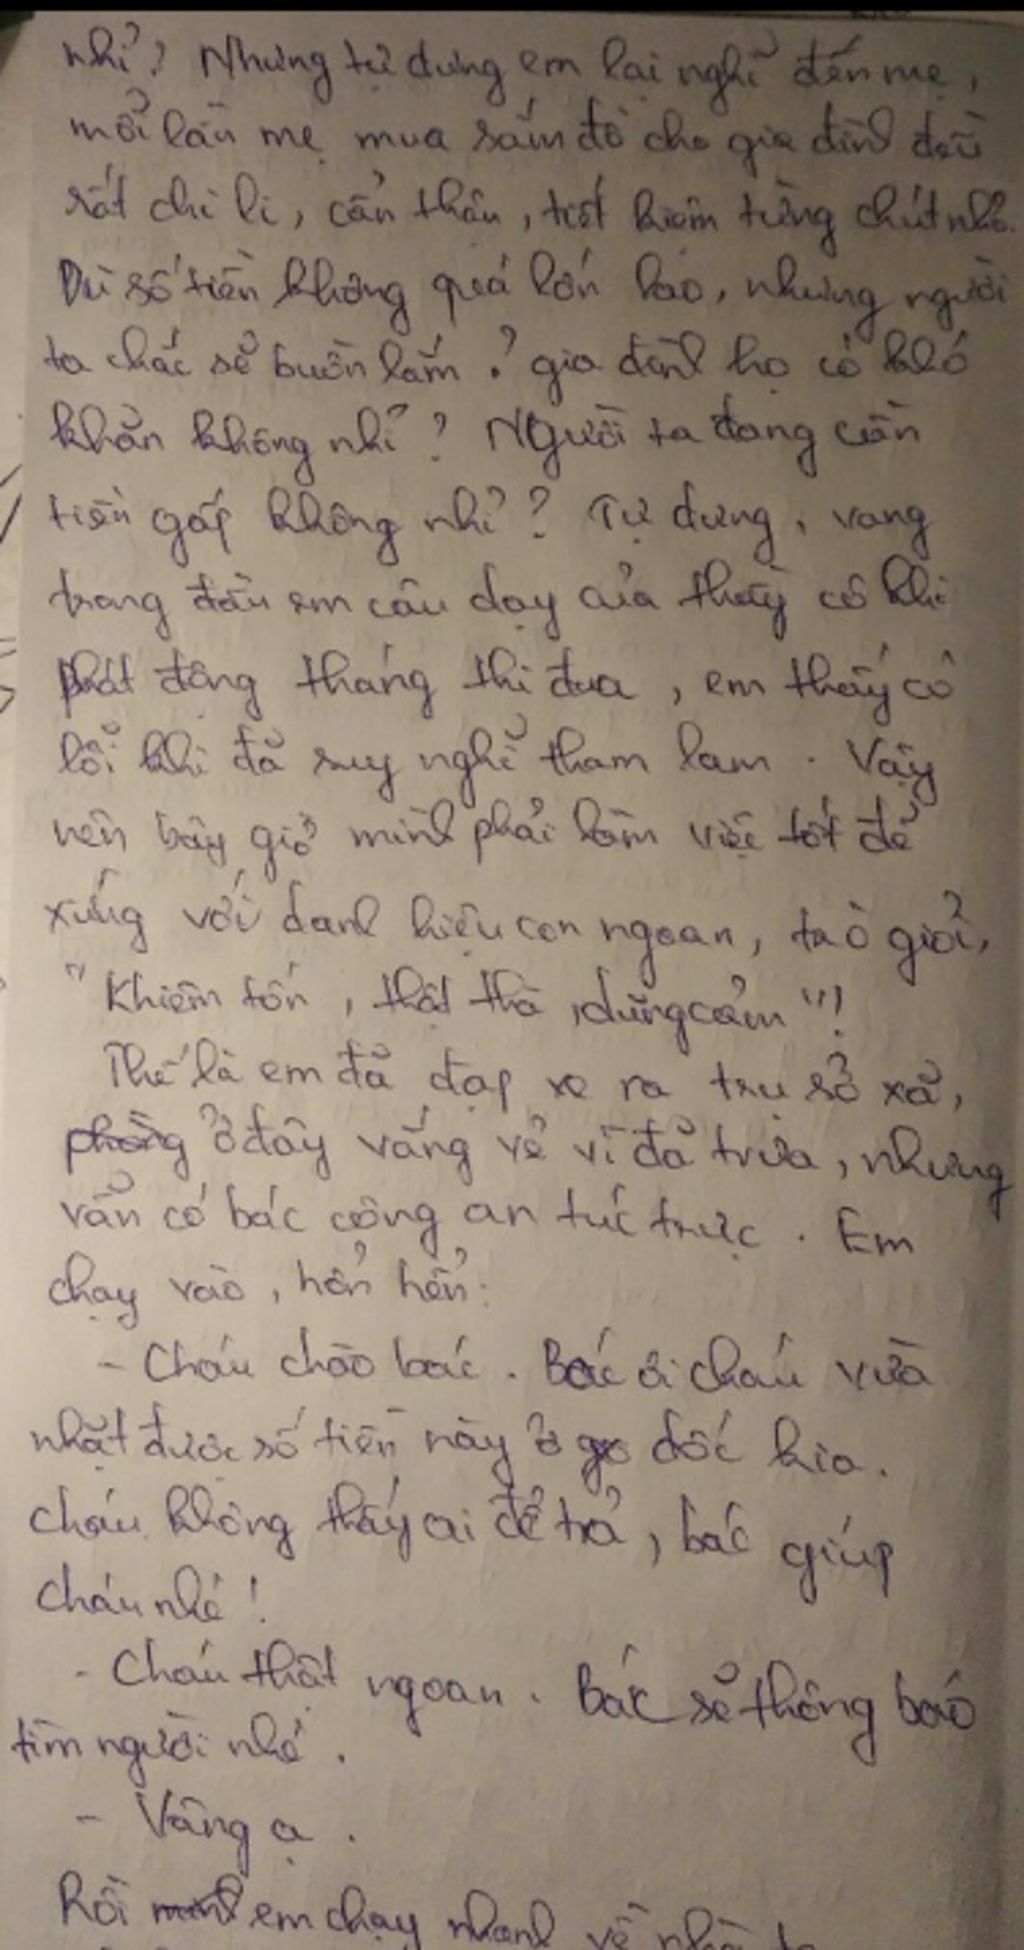 nhỉ? Nhưng tự dưng em lại nghĩ đến mẹ,
mỗi lần mẹ mua sắm đồ cho gia đình đều
rất chi li, cẩn thận, tiết kiệm từng chút nhỏ.
Dù số tiền không quá lớn lao, nhưng người
ta chắc sẽ buồn lắm. ? gia đình họ có khó
khăn không nhỉ? Người ta đang cần
tiền gấp không nhỉ? Tự dưng, vang
trong đầu em câu dạy của thầy cô khi
phát động tháng thi đua, em thấy có
lỗi khi đã suy nghĩ tham lam. Vậy
nên bây giờ mình phải làm việc tốt để
xứng với danh hiệu con ngoan, trò giỏi,
"Khiêm tốn, thật thà, dũng cảm"!
Thế là em đã đạp xe ra trụ sở xã,
phòng ở đây vắng vẻ vì đã trưa, nhưng
vẫn có bác công an túc trực. Em
chạy vào, hổn hển:
- Cháu chào bác. Bác ơi cháu vừa
nhặt được số tiền này ở go dốc kia.
cháu không thấy ai để trả, bác giúp
cháu nhé!
- Cháu thật ngoan. Bác sẽ thông báo
tìm người nhé.
- Vâng ạ.
Rồi mình em chạy nhanh về nhà